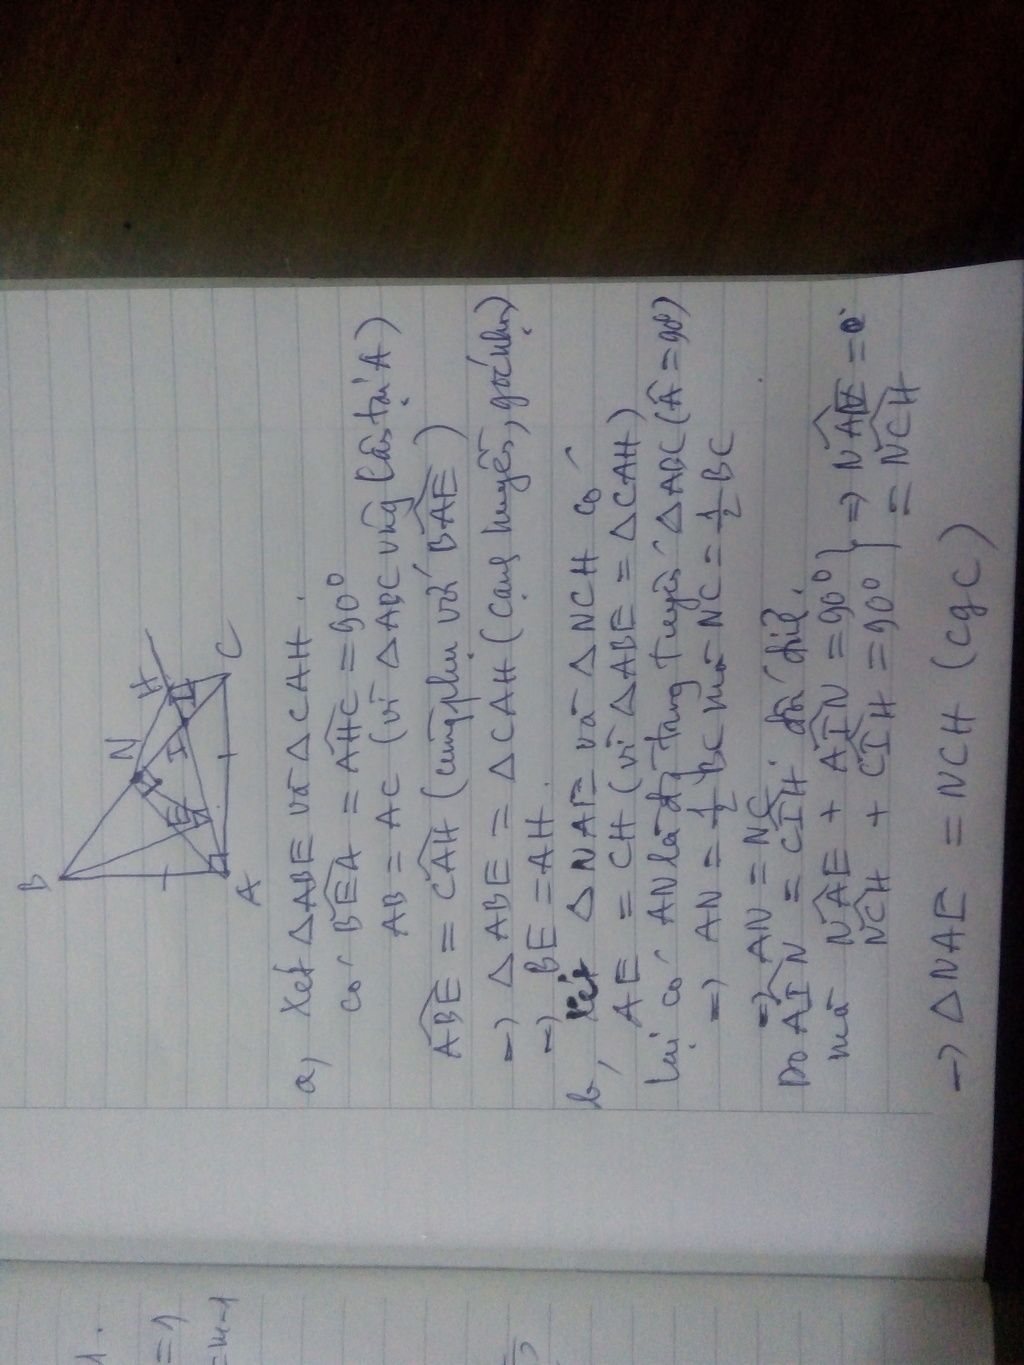 B
N
H
E
I
A
C
a, Xét △ABE và △CAH.
có BEA = AHC = 90°
AB = AC (vì △ABC vuông cân tại A)
ABE = CAH (cùng phụ với BAE)
=) △ABE = △CAH (cạnh huyền, góc nhọn)
=) BE = AH.
b, Xét △NAE và △NCH có
AE = CH (vì △ABE = △CAH)
lại có AN là đg trung tuyến △ABC (A = 90°)
=) AN = 1/2 BC mà NC = 1/2 BC
=) AN = NC
Do AIN = CIH đối đỉnh.
mà NAE + AIN = 90° } =) NAE =
NCH + CIH = 90° = NCH
=) △NAE = NCH (cgc)
1.
= 1
= m-1